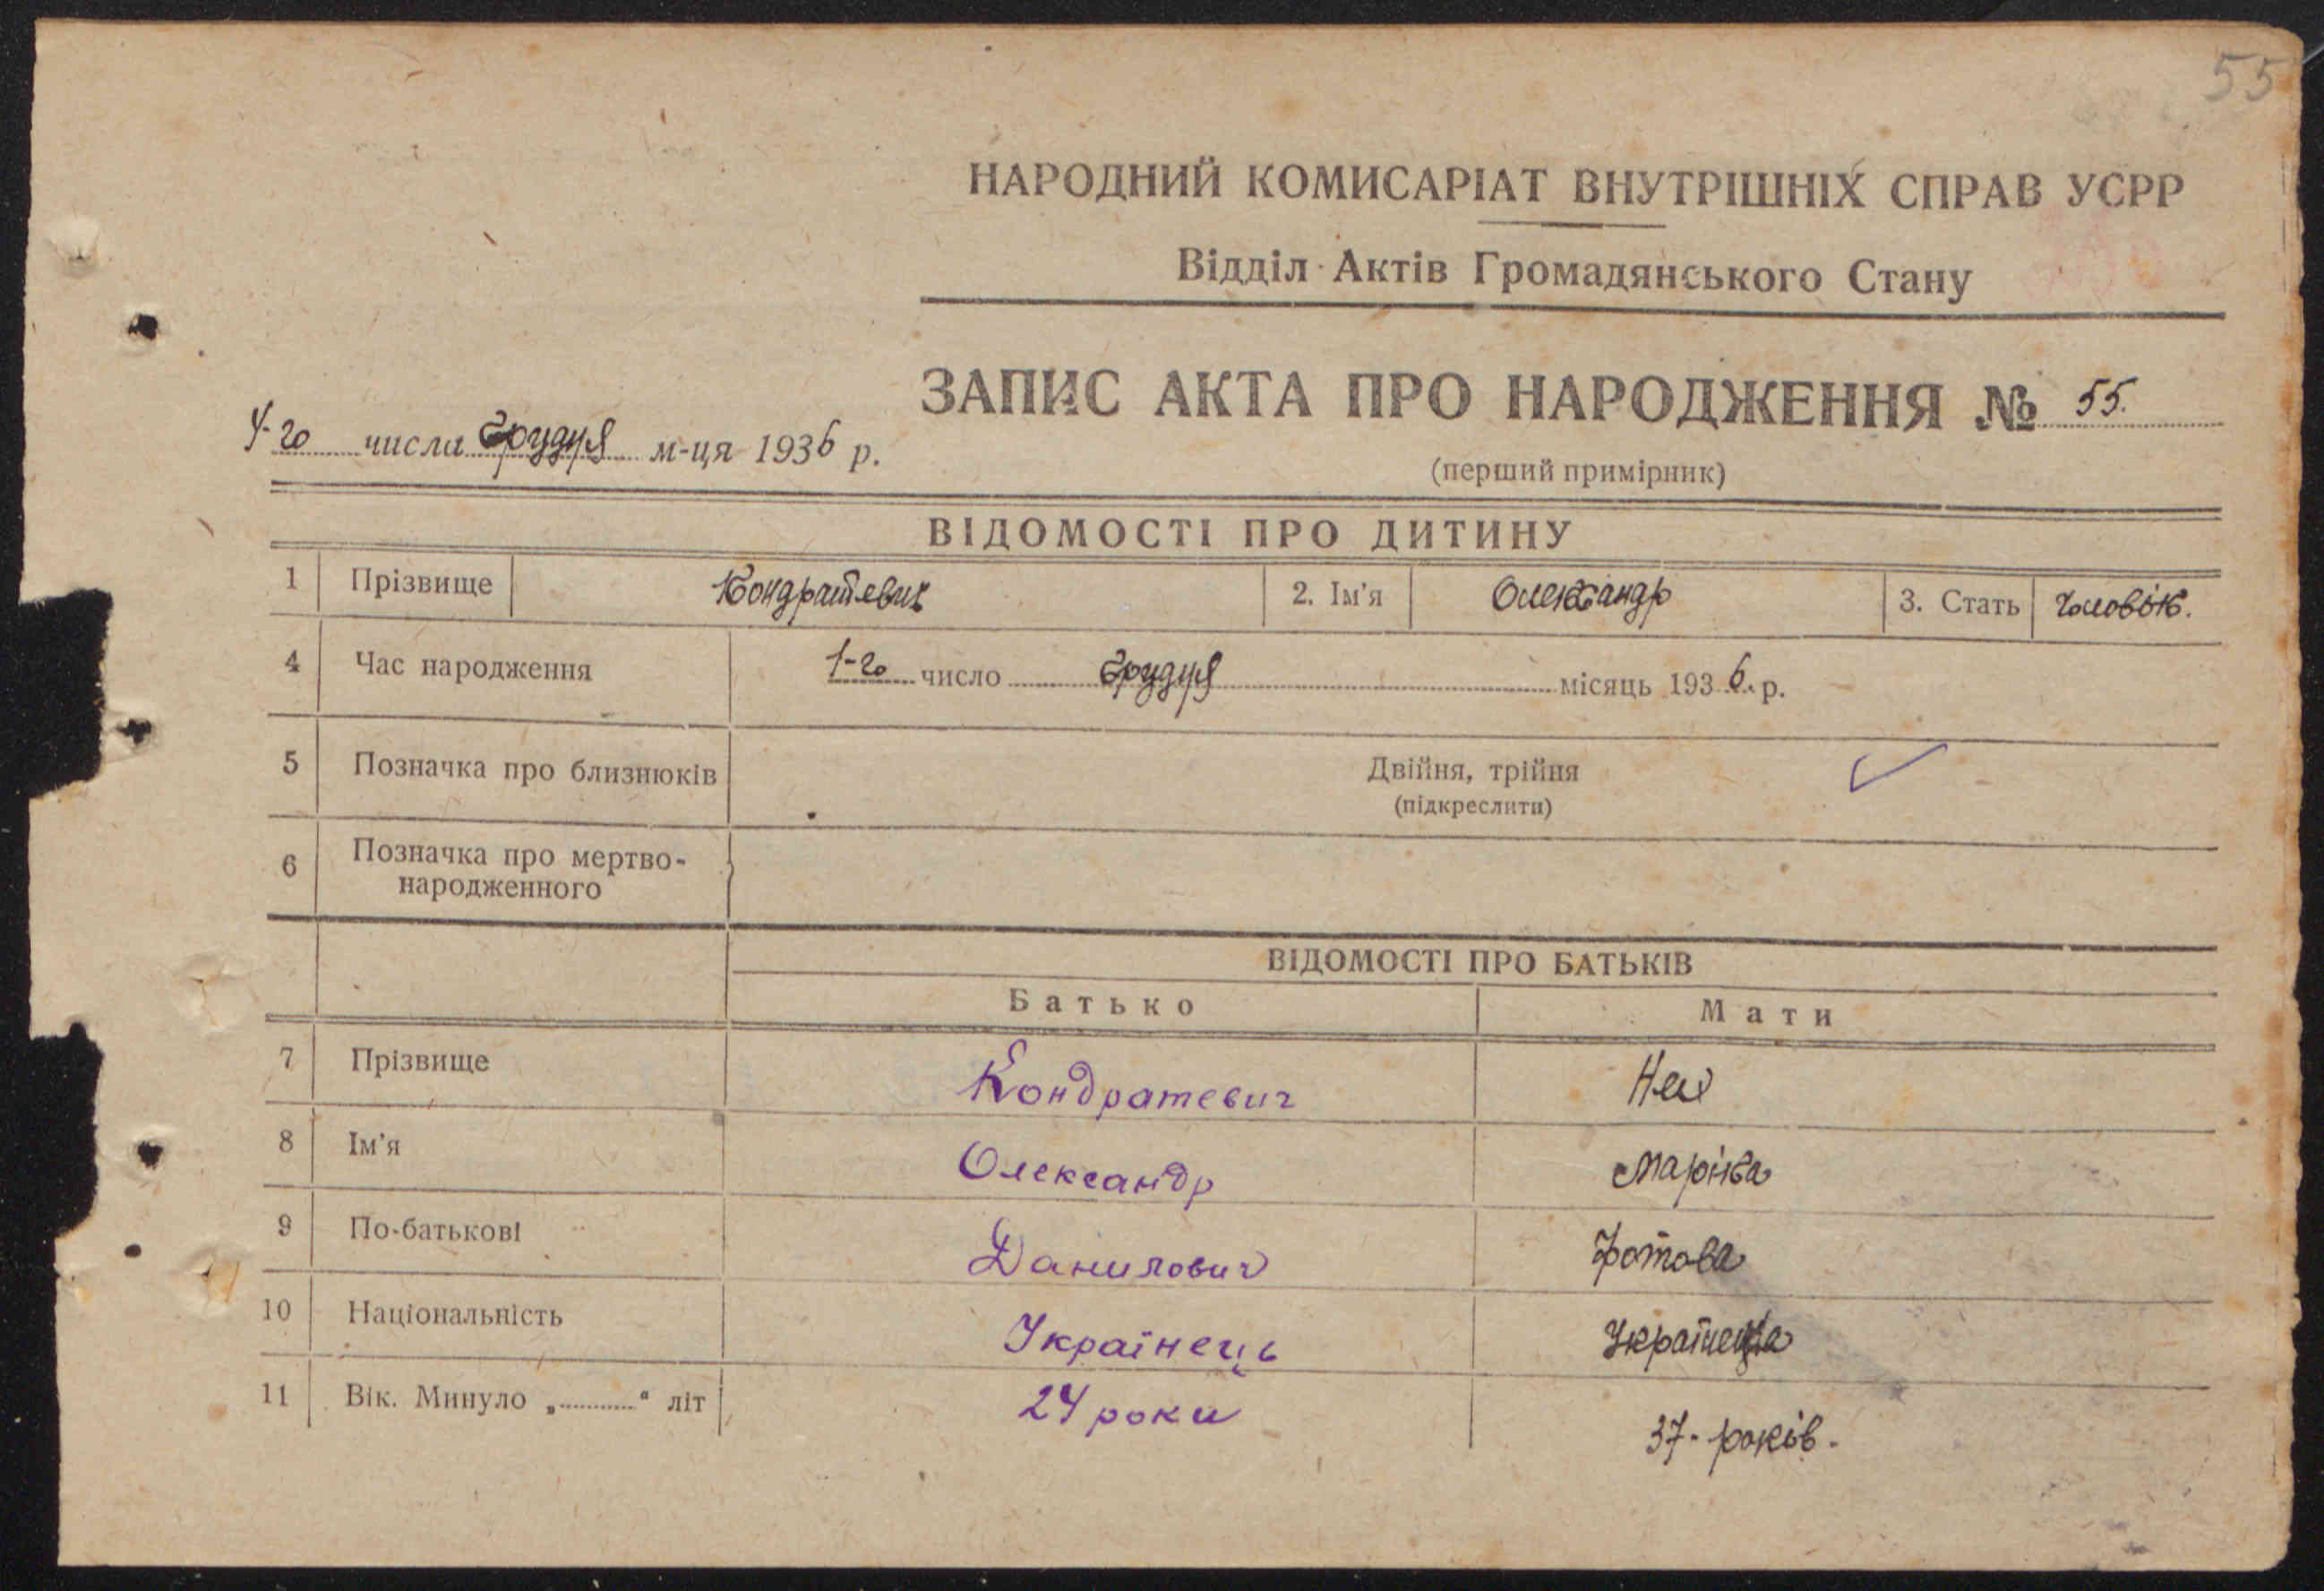 55
НАРОДНИЙ КОМИСАРІАТ ВНУТРІШНІХ СПРАВ УСРР
Відділ Актів Громадянського Стану
ЗАПИС АКТА ПРО НАРОДЖЕННЯ № 55.
4-го числа грудня м-ця 1936 р.
(перший примірник)
ВІДОМОСТІ ПРО ДИТИНУ
1 Прізвище Кондратевич 2. Ім'я Олександр 3. Стать Чоловік.
4 Час народження 1-го число грудня місяць 1936. р.
5 Позначка про близнюків Двійня, трійня
(підкреслити)
6 Позначка про мертво-
народженного
ВІДОМОСТІ ПРО БАТЬКІВ
Батько Мати
7 Прізвище Кондратевич
8 Ім'я Олександр Маріка
9 По-батькові Данилович
10 Національність Українець Українка
11 Вік. Минуло „............“ літ 24 роки 37-років.